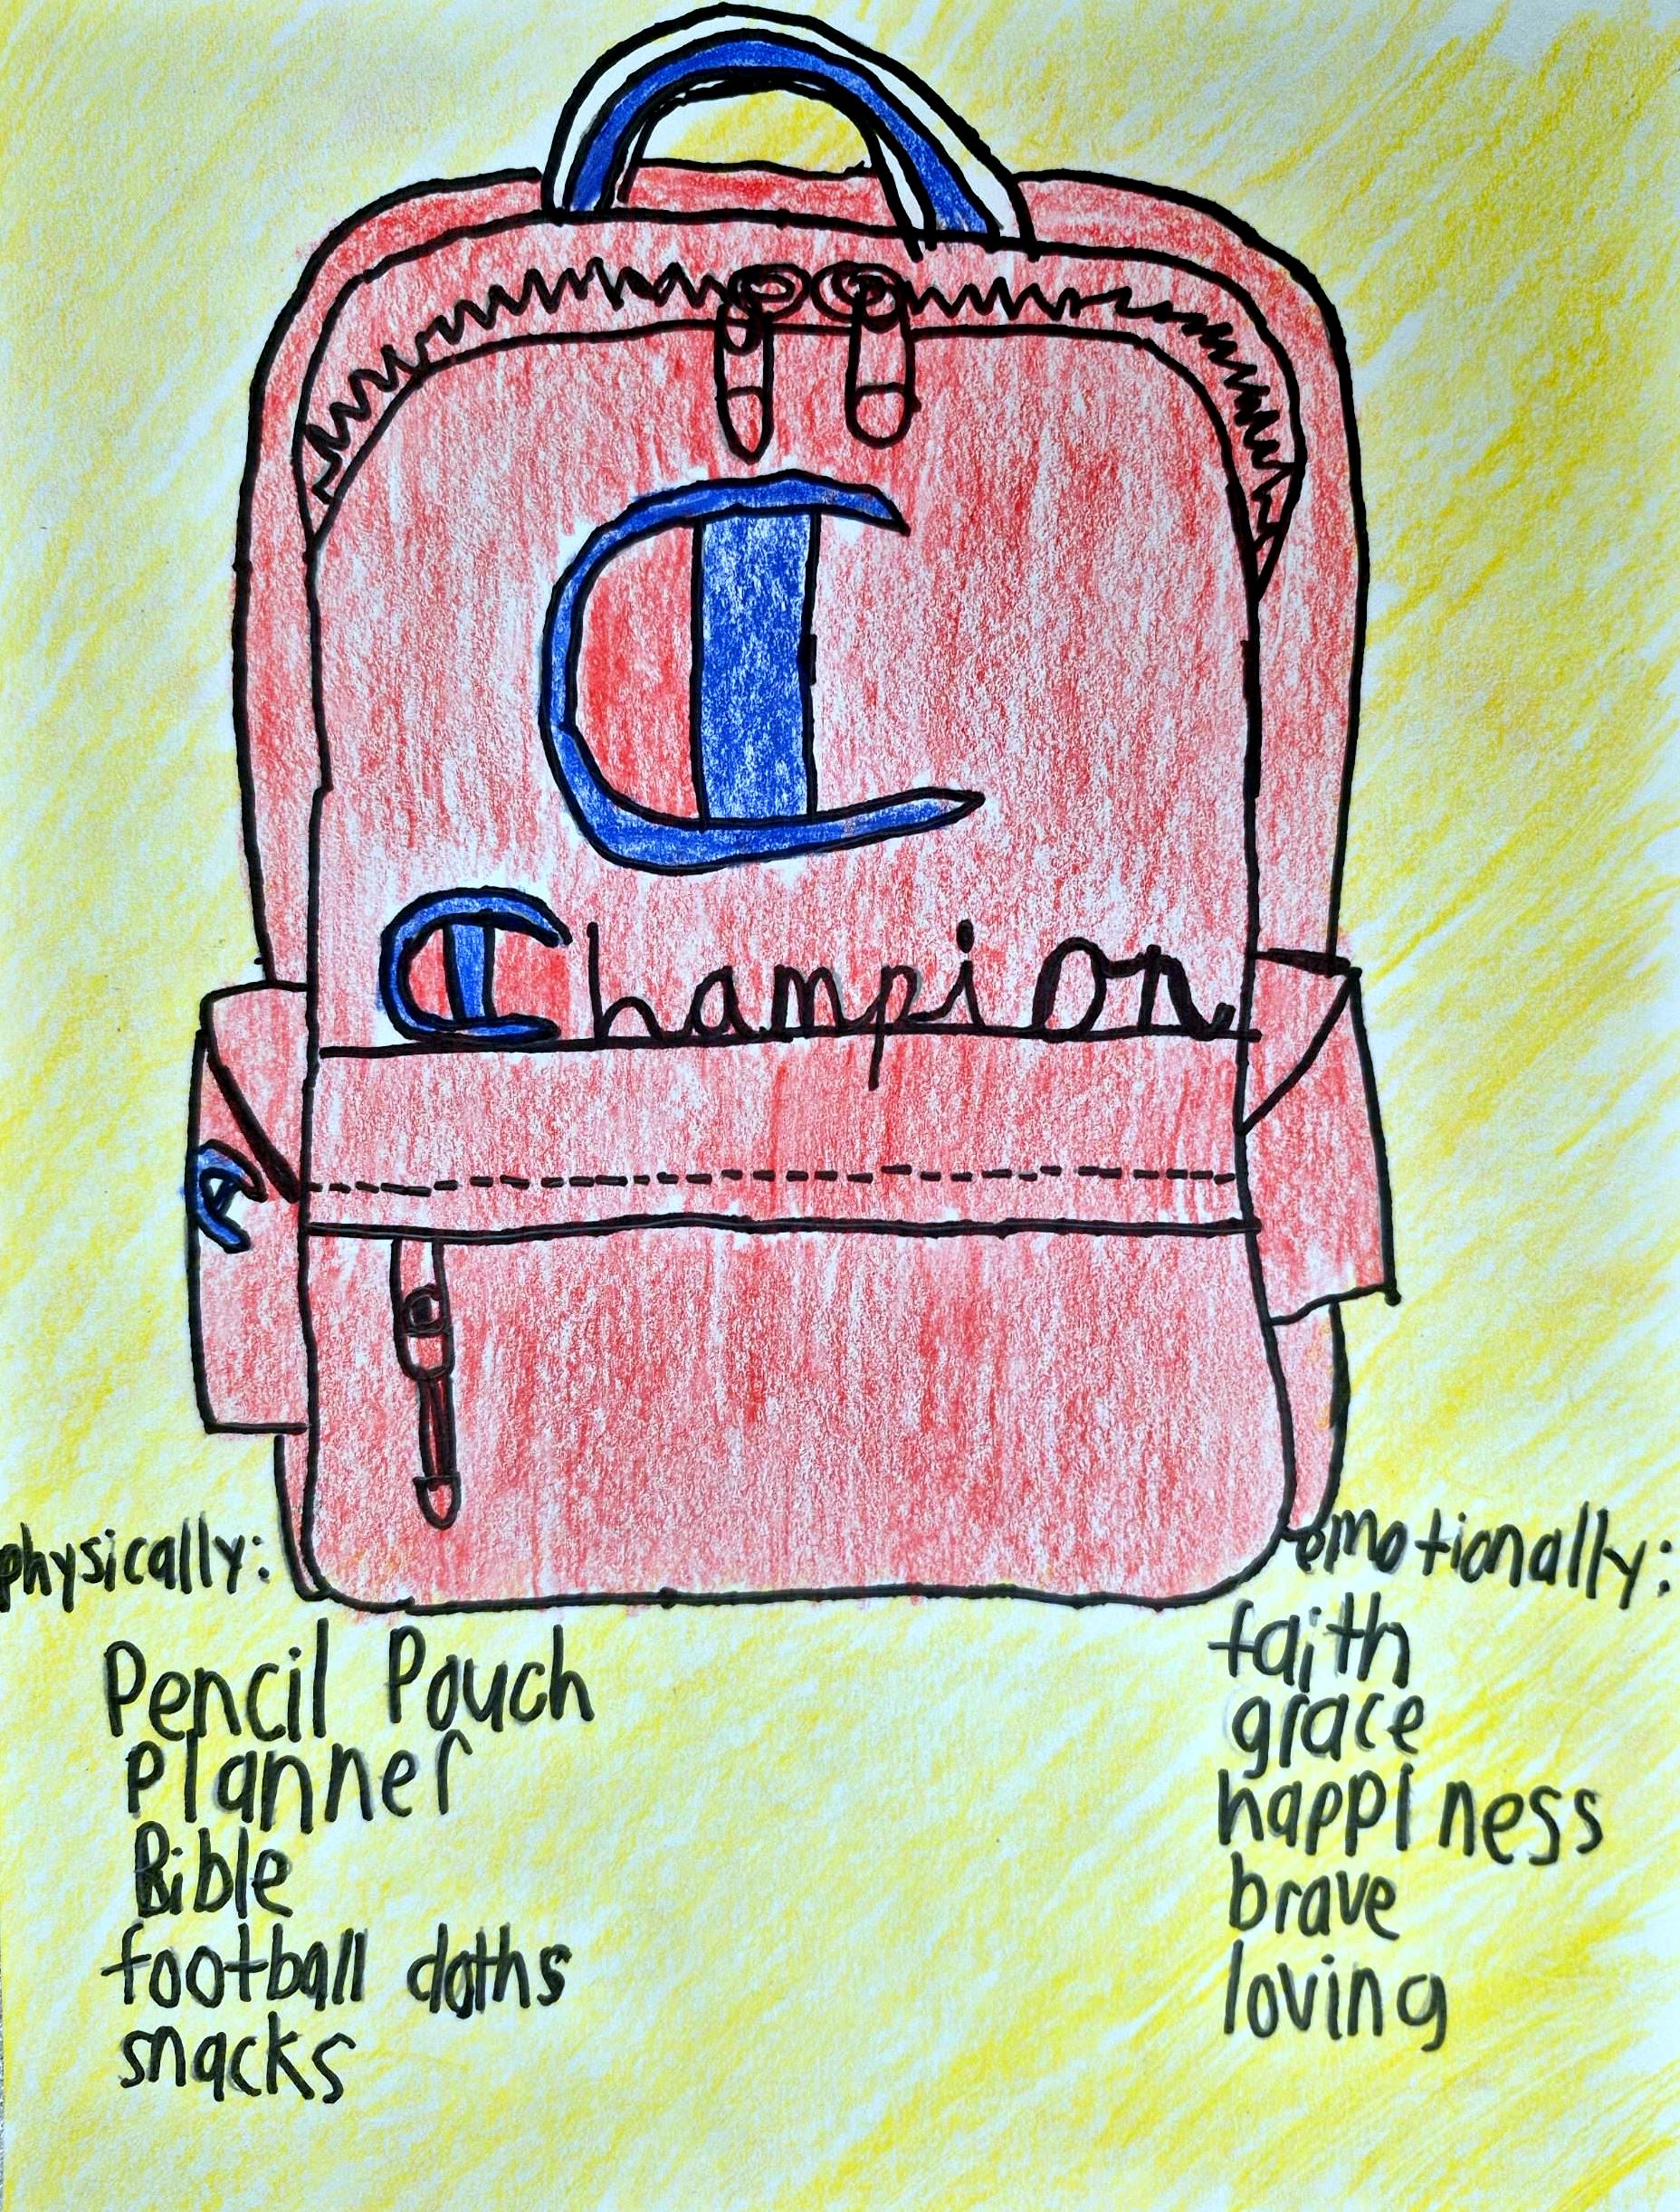 Champion
physically:
Pencil Pouch
Planner
Bible
football cloths
snacks
emotionally:
faith
grace
happiness
brave
loving